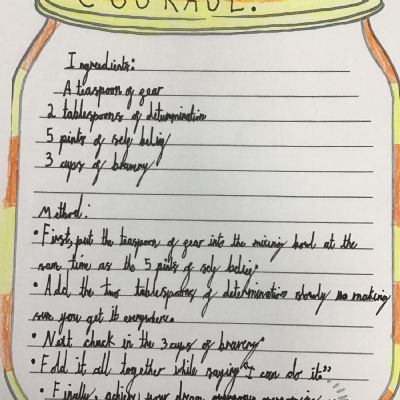 COURAGE.
Ingredients:
A teaspoon of gear
2 tablespoons of determination
5 pints of self belief
3 cups of bravery
Method:
• First, put the teaspoon of gear into the mixing bowl at the
same time as the 5 pints of self belief.
• Add the two tablespoons of determination slowly making
sure you get it everywhere.
• Next chuck in the 3 cups of bravery.
• Fold it all together while saying "I can do it"
• Finally, achieve your dream